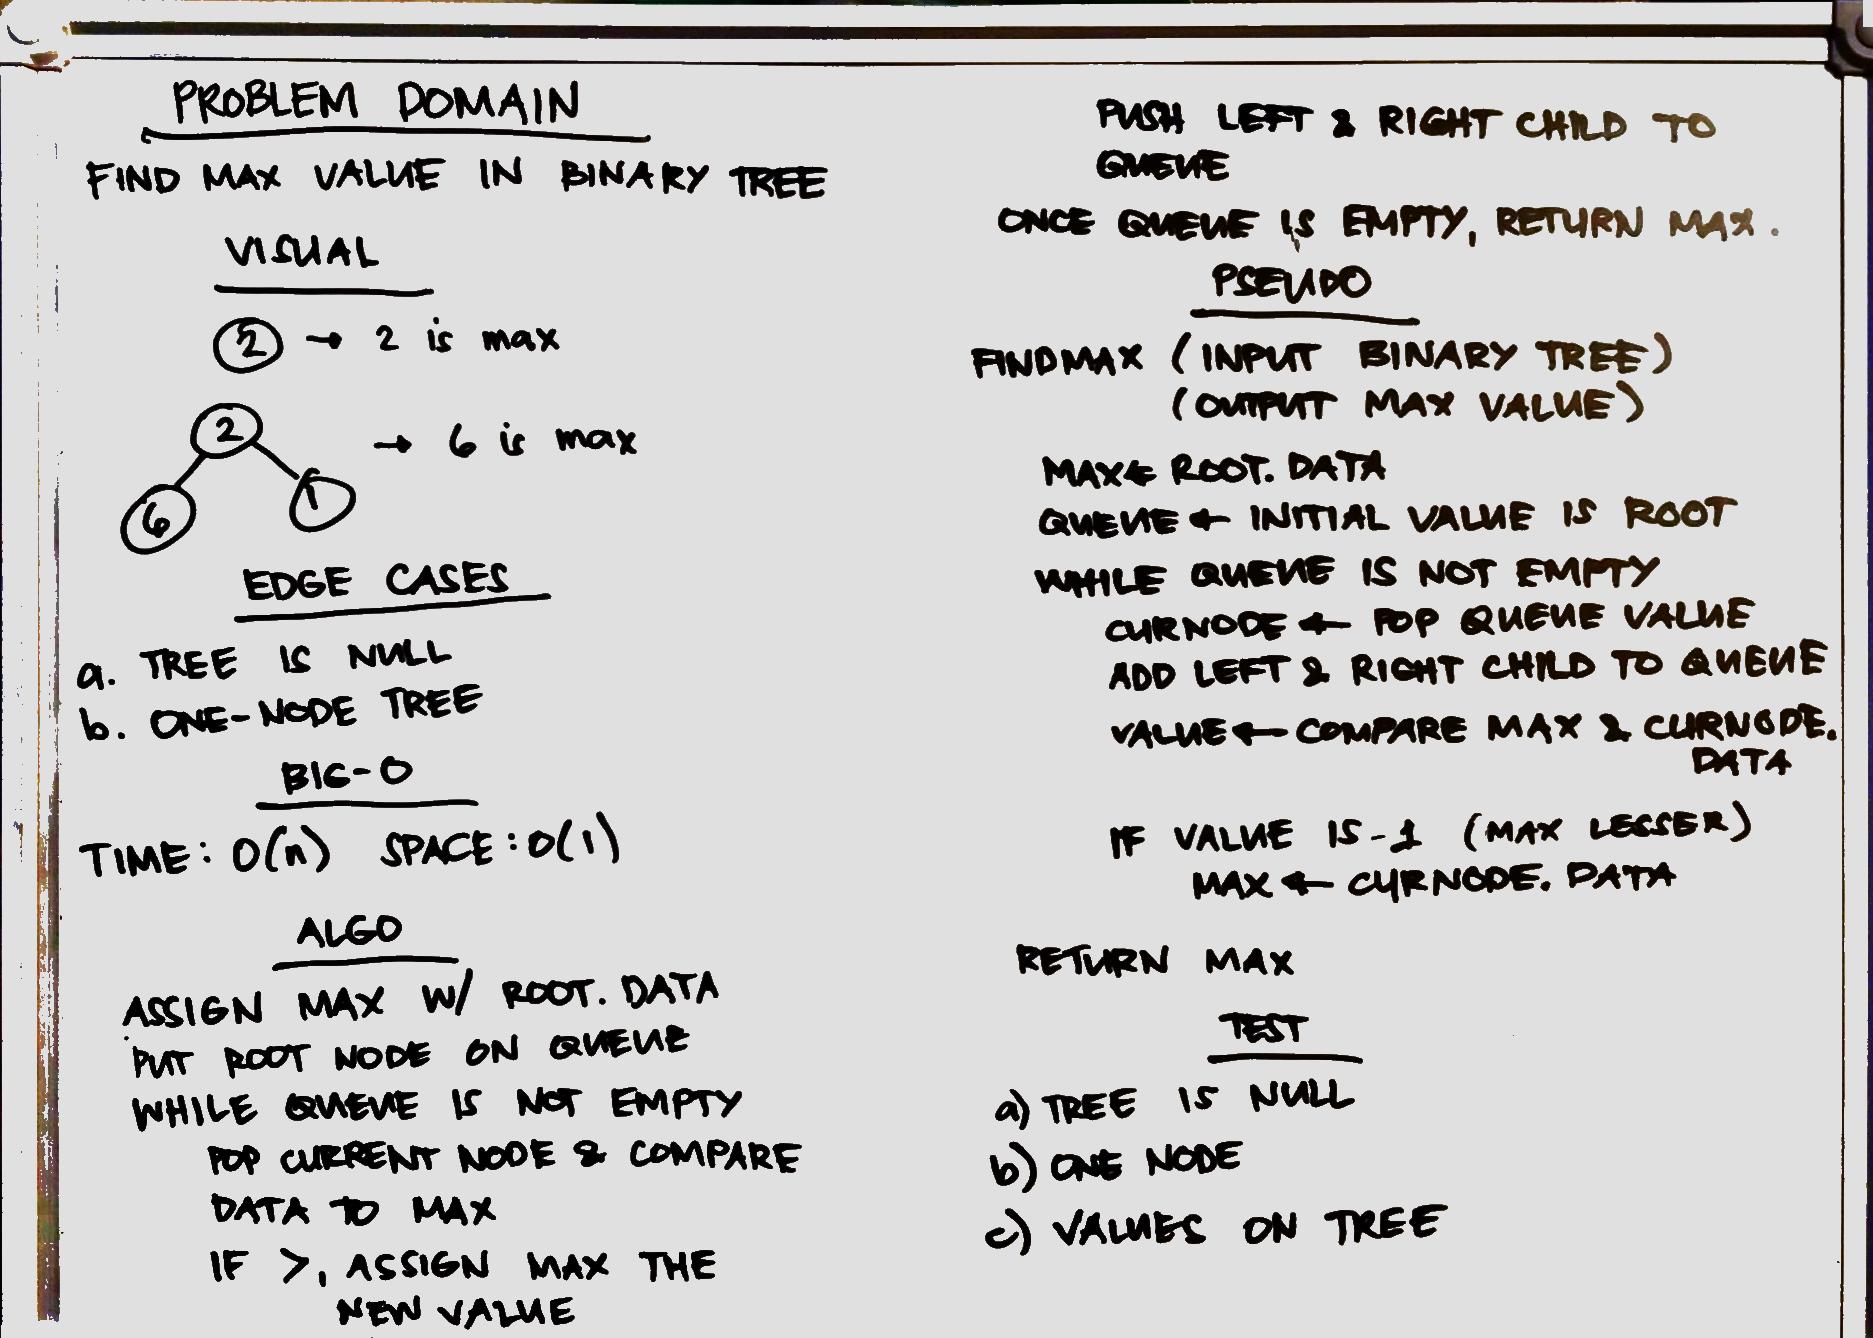 PROBLEM DOMAIN
FIND MAX VALUE IN BINARY TREE
VISUAL
2 → 2 is max
2 → 6 is max
6 1
EDGE CASES
a. TREE IS NULL
b. ONE-NODE TREE
BIG-O
TIME: O(n) SPACE: O(1)
ALGO
ASSIGN MAX W/ ROOT. DATA
PUT ROOT NODE ON QUEUE
WHILE QUEUE IS NOT EMPTY
POP CURRENT NODE & COMPARE
DATA TO MAX
IF >, ASSIGN MAX THE
NEW VALUE
PUSH LEFT & RIGHT CHILD TO
QUEUE
ONCE QUEUE IS EMPTY, RETURN MAX.
PSEUDO
FINDMAX (INPUT BINARY TREE)
(OUTPUT MAX VALUE)
MAX ← ROOT. DATA
QUEUE ← INITIAL VALUE IS ROOT
WHILE QUEUE IS NOT EMPTY
CURNODE ← POP QUEUE VALUE
ADD LEFT & RIGHT CHILD TO QUEUE
VALUE ← COMPARE MAX & CURNODE.
DATA
IF VALUE IS -1 (MAX LESSER)
MAX ← CURNODE. DATA
RETURN MAX
TEST
a) TREE IS NULL
b) ONE NODE
c) VALUES ON TREE